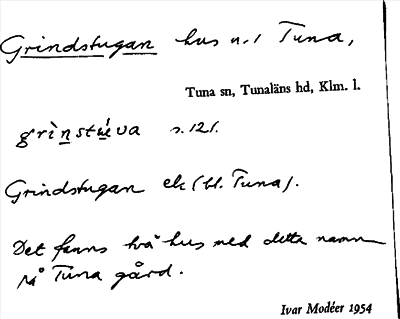 Grindstugan hus n.1 Tuna,
Tuna sn, Tunaläns hd, Klm. l.
grìnstúva s. 121.
Grindstugan ek (bl. Tuna).
Det fanns två hus med detta namn
på Tuna gård.
Ivar Modéer 1954